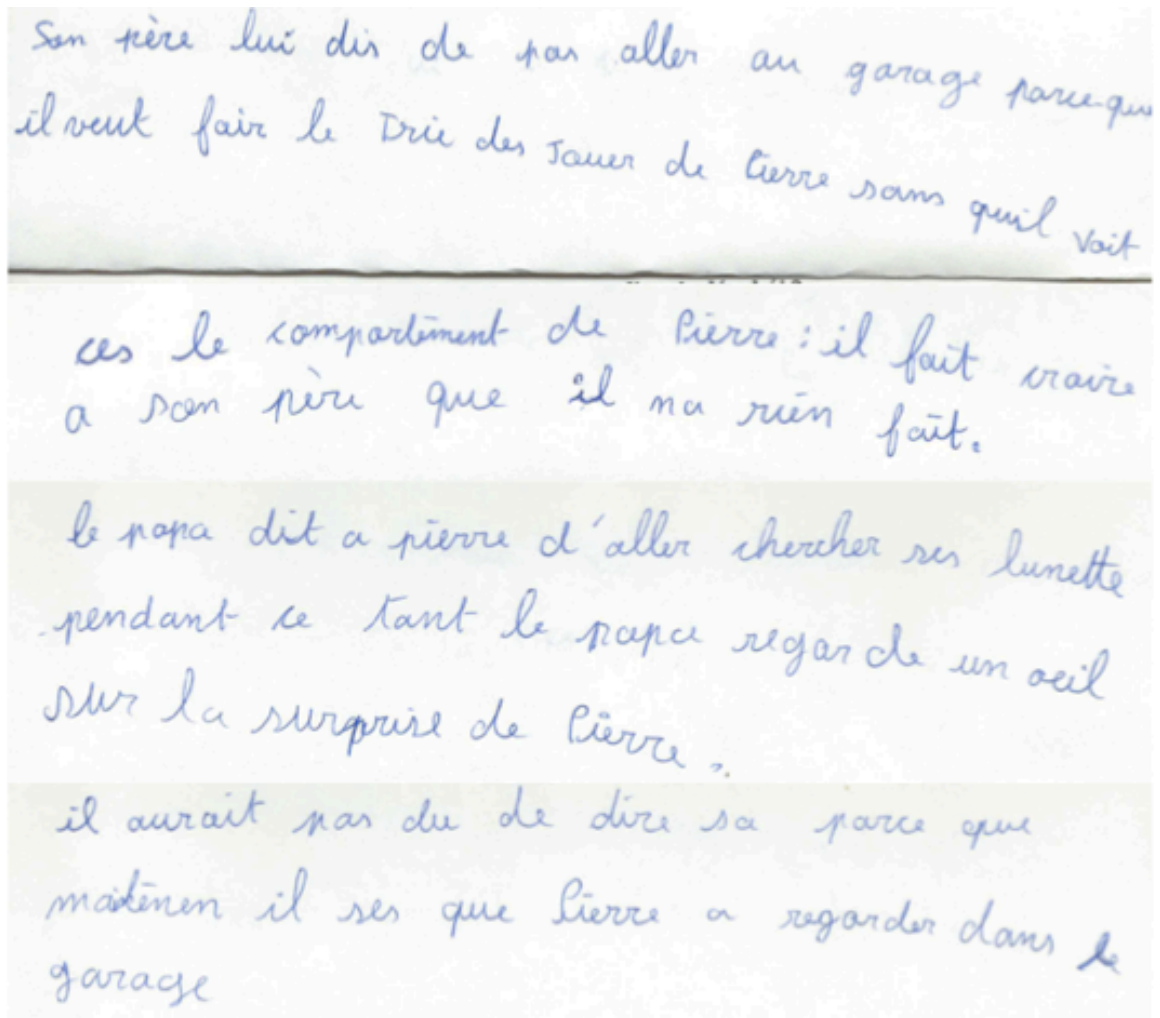 Son père lui dis de pas aller au garage parce que
il veut fair le Trie des Jouer de Pierre sans quil voit
ces le compartement de Pierre : il fait croire
a son père que il na rien fait.
le papa dit a pierre d'aller chercher ses lunette
pendant ce tant le papa regarde un oeil
sur la surprise de Pierre.
il aurait pas du de dire sa parce que
maitenen il ses que Pierre a regarder dans le
garage